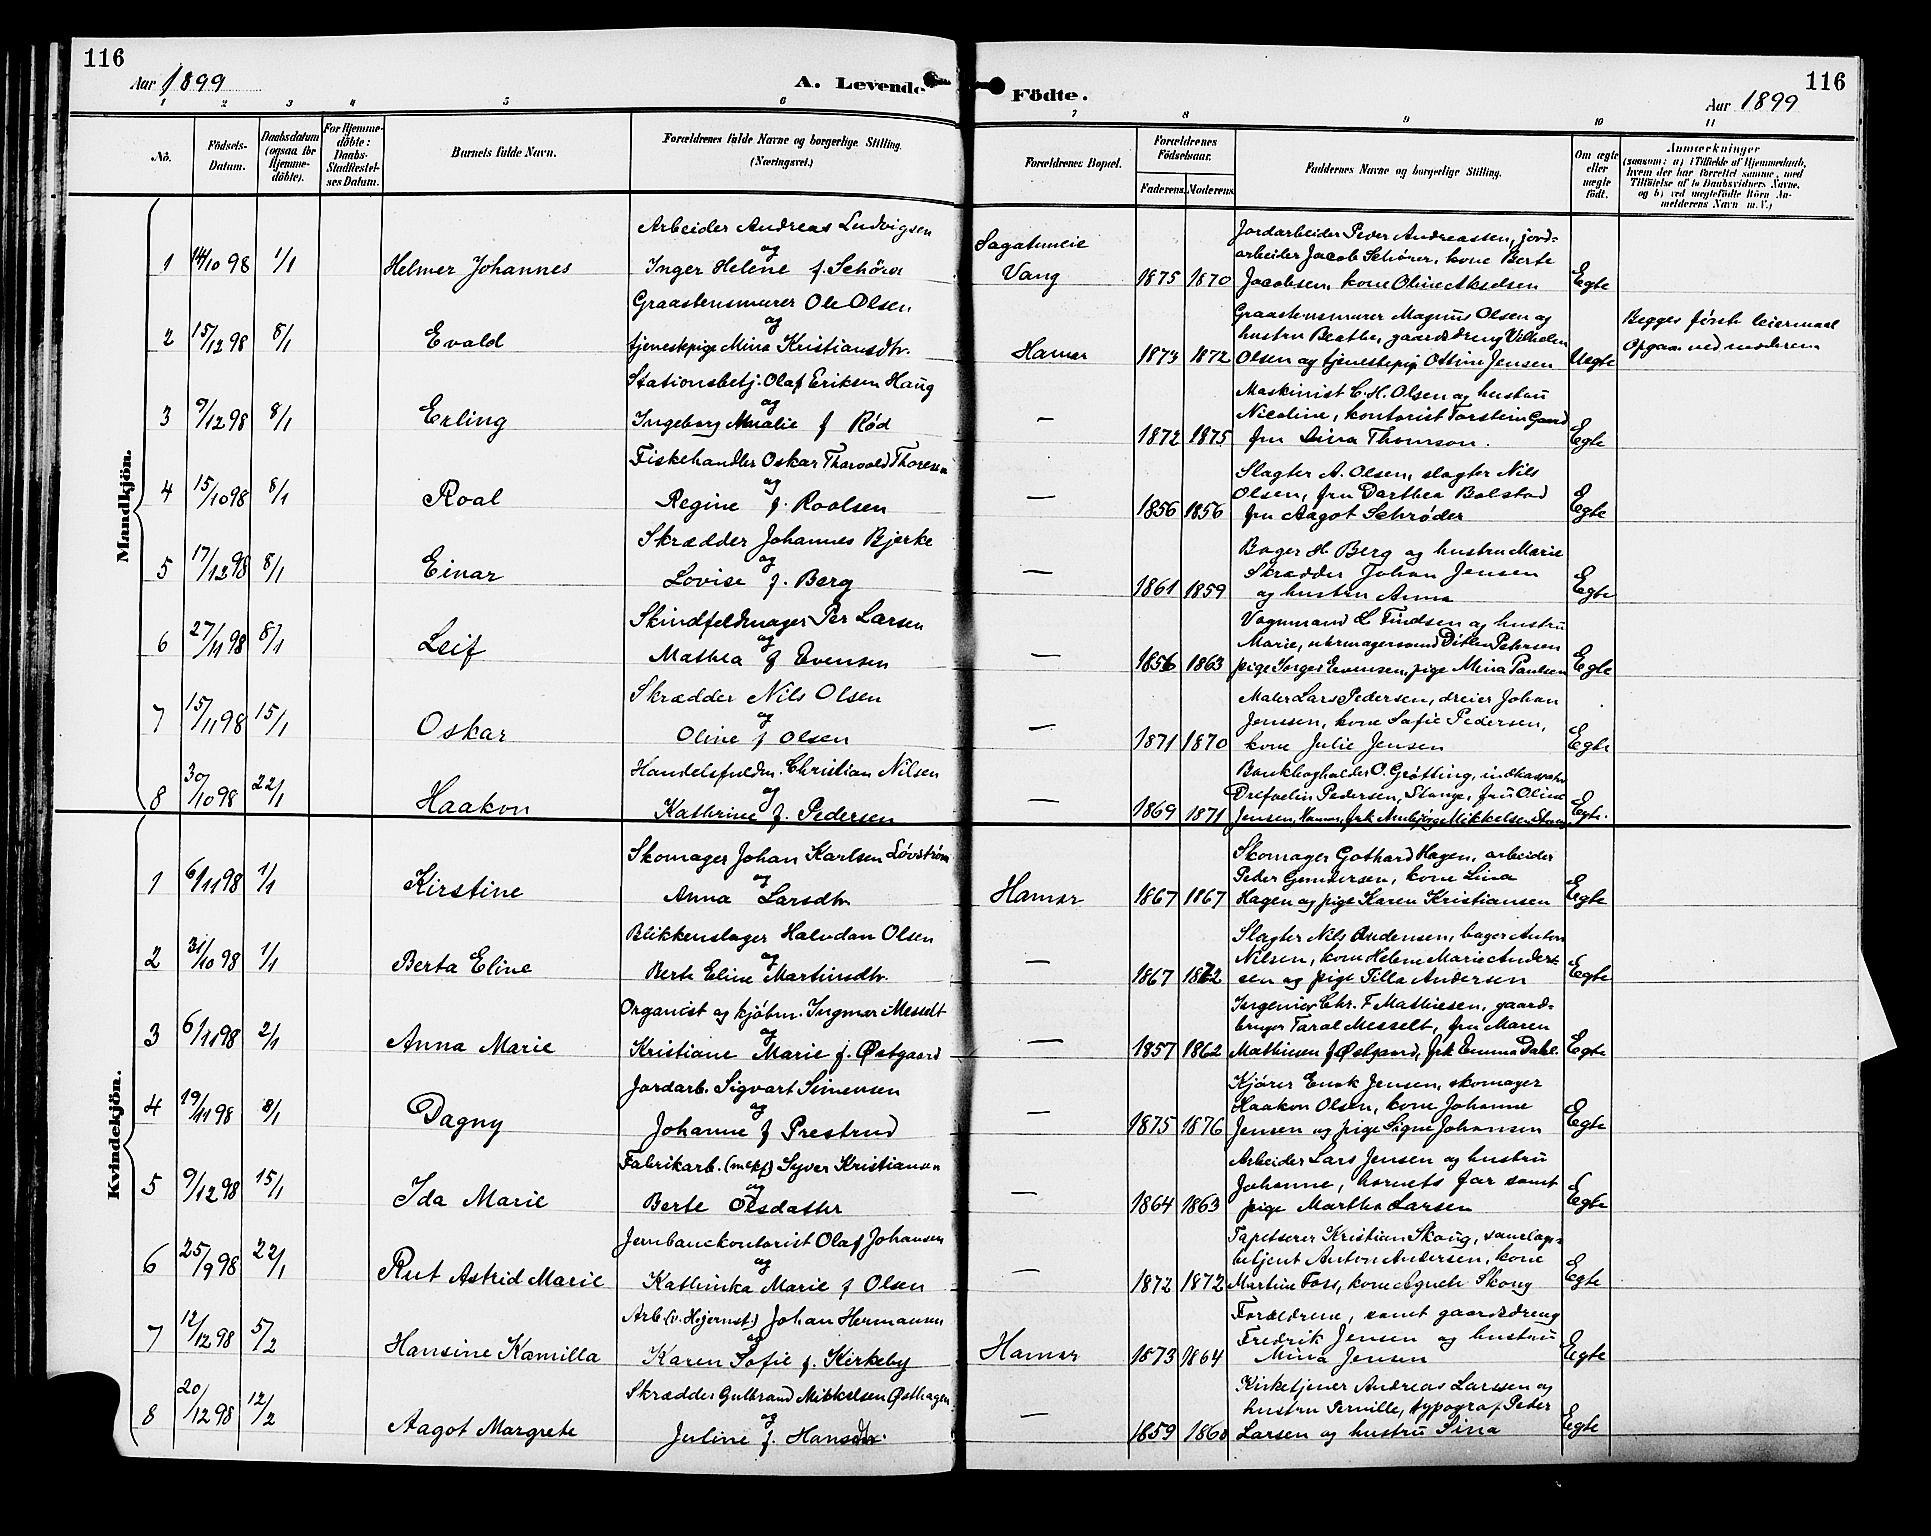 116
116
Aar 1899
A. Levende Födte.
Aar 1899
1 2 3 4 5 6 7 8 9 10 11
No.
Födsels-
Datum.
Daabsdatum
(ogsaa for
Hjemme-
döbte).
For Hjemme-
döbte:
Daabs-
Stadfestel-
ses Datum.
Barnets fulde Navn.
Forældrenes fulde Navne og borgerlige Stilling.
(Næringsvei.)
Forældrenes Bopæl.
Forældrenes
Födselsaar.
Faderens. Moderens.
Faddernes Navne og borgerlige Stilling.
Om ægte
eller
uægte
födt.
Anmærkninger
(saasom: a) i Tilfælde af Hjemmedaab,
hvem der har forrettet samme, med
Tilföielse af to Daabsvidners Navne,
og b) ved uægtefödte Börn An-
melderens Navn m. V.)
Mandkjön.
1 14/10 98 1/1 Helmer Johannes
Arbeider Andreas Ludvigsen
og
Inger Helene f.
Vang
1875 1870
Jordarbeider Peder Andreassen, jord-
arbeider Jacob Schører, kone Berte
Jacobsen, kone Oline Akselsen
Egte
2 15/12 98 8/1 Evald
Graastensmurer Ole Olsen
og
tjenestepige Mina Kristiansdtr.
Hamar
1873 1872
Graastensmurer Magnus Olsen og
hustru Beathe, gaardsdreng Vilhelm
Olsen og tjenestepig Ottine Jensen
Uegte
Begges første leiermaal
Opgave ved moderen
3 9/12 98 8/1 Erling
Stationsbetj. Olaf Eriksen Haug
og
Ingeborg Amalie f Rød
—
1872 1875
Maskinist C. H. Olsen og hustru
Nicoline, kontorist Torstein Gaard
fru Dina Thomson.
Egte
4 15/10 98 8/1 Roal
Fiskehandler Oskar Thorvald Thoresen
og
Regine f. Roolsen
—
1856 1856
Slagter A. Olsen, slagter Nils
Olsen, fru Darthea Bolstad
fru Aagot Schrøder
Egte
5 17/12 98 8/1 Einar
Skrædder Johannes Bjerke
og
Lovise f. Berg
—
1861 1859
Bager H. Berg og hustru Marie
Skrædder Johan Jensen
og hustru Anna
Egte
6 27/11 98 8/1 Leif
Skindfeldmager Per Larsen
og
Mathea f Evensen
—
1856 1863
Vognmand L. Findsen og hustru
Marie, urmagersvend Ditlev Petersen
pige Evensen, pige Mina Paulsen
Egte
7 15/11 98 15/1 Oskar
Skrædder Nils Olsen
og
Oline f Olsen
—
1871 1870
Maler Lars Pedersen, dreier Johan
Jenssen, kone Sofie Pedersen,
kone Julie Jensen
Egte
8 30/10 98 22/1 Haakon
Handelsfuldm. Christian Nilsen
og
Kathrine f. Pedersen
—
1869 1871
Bankbogholder O. Grøtting,
Pedersen, Stange, fru Oline
Jensen, Hamar, frk Mikkelsen
Egte.
Kvindekjön.
1 6/11 98 1/1 Kirstine
Skomager Johan Karlsen Løvstrøm
og
Anna Larsdtr
Hamar
1867 1867
Skomager Gothard Hagen, arbeider
Peder Gundersen, kone Lina
Hagen og pige Karen Kristiansen
Egte
2 31/10 98 1/1 Berta Eline
Blikkenslager Halvdan Olsen
og
Berte Eline Martinsdtr.
—
1867 1872
Slagter Nils Andersen, bager Anton
Nilsen, kone Helene Marie Ander-
sen og pige Tilla Andersen
Egte
3 6/11 98 2/1 Anna Marie
Organist og kjøbm. Ingmar Messelt
og
Kristiane Marie f. Østgaard
—
1857 1862
Ingeniør Chr. F Mathiesen, gaard-
bruger Taral Messelt, fru Maren
Mathiesen f Østgaard, frk Emma Dahl.
Egte
4 19/11 98 8/1 Dagny
Jordarb. Sigvart Simensen
og
Johanne f Prestrud
—
1875 1876
Kjører Enok Jensen, skomager
Haakon Olsen, kone Johanne
Jensen og pige Signe Johansen
Egte
5 9/12 98 15/1 Ida Marie
Fabrikarb. Syver Kristiansen
og
Berte Olsdatter
—
1864 1863
Arbeider Lars Jensen og hustru
Johanne, barnets far samt
pige Marthe Larsen
Egte
6 25/9 98 22/1 Rut Astrid Marie
Jernbanekontorist Olaf Johansen
og
Kathinka Marie f Olsen
—
1872 1872
Tapetserer Kristian Skoug, samlags-
betjent Anton Andersen, kone
Martine Foss, kone Agnete Skoug
Egte
7 12/12 98 5/2 Hansine Kamilla
Arb (v. Hejernst.) Johan Hermansen
og
Karen Sofie f. Kirkeby
Hamar
1873 1864
Forældrene, samt gaardsdreng
Fredrik Jensen og hustru
Mina Jensen
Egte
8 20/12 98 12/2 Aagot Margrete
Skrædder Gulbrand Mikkelsen Østhagen
og
Juline f. Hansdtr.
—
1859 1860
Kirketjener Andreas Larssen og
hustru Pernille, typograf Peder
Larsen og hustru Sina
Egte